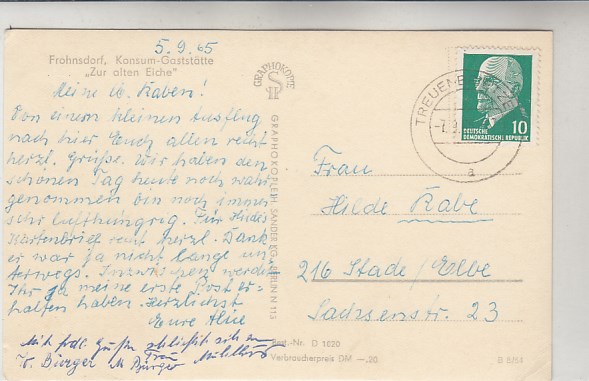 5.9.65
Frohnsdorf, Konsum-Gaststätte
"Zur alten Eiche"
Meine lb. Raben!
Von einem kleinen Ausflug
nach hier Euch allen recht
herzl. Grüße. Wir haben den
schönen Tag heute noch wahr
genommen bin noch immer
sehr lufthungrig. Für Hildes
Kartenbrief recht herzl. Dank
er war ja nicht lange un-
terwegs. Inzwischen werdet
Ihr ja meine erste Post er-
halten haben. Herzlichst
Eure Alice
Mit frdl. Grüßen schließt sich an
W. Bürger u Frau M Bürger
GRAPHOKOPIE
GRAPHOKOPIE H. SANDER KG, BERLIN N 113
TREUENBRIETZEN
a
DEUTSCHE
DEMOKRATISCHE REPUBLIK
10
Frau
Hilde Rabe
216 Stade/Elbe
Sachsenstr. 23
Best.-Nr. D 1020
Verbraucherpreis DM —.20